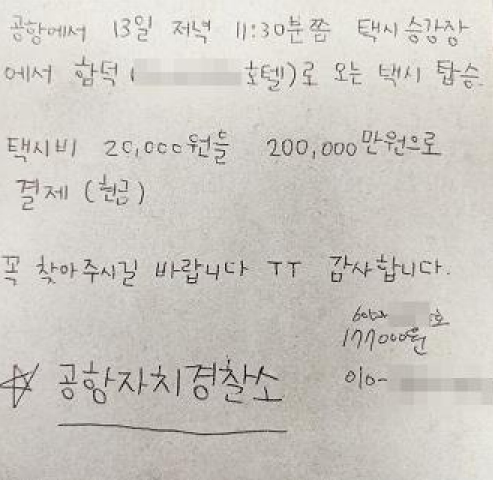 공항에서 13일 저녁 11:30분쯤 택시 승강장
에서 함덕 ( 호텔)로 오는 택시 탑승.
택시비 20,000원을 200,000만원으로
결제 (현금)
꼭 찾아주시길 바랍니다 ㅠㅠ 감사합니다.
호
177000원
☆ 공항자치경찰소
010-